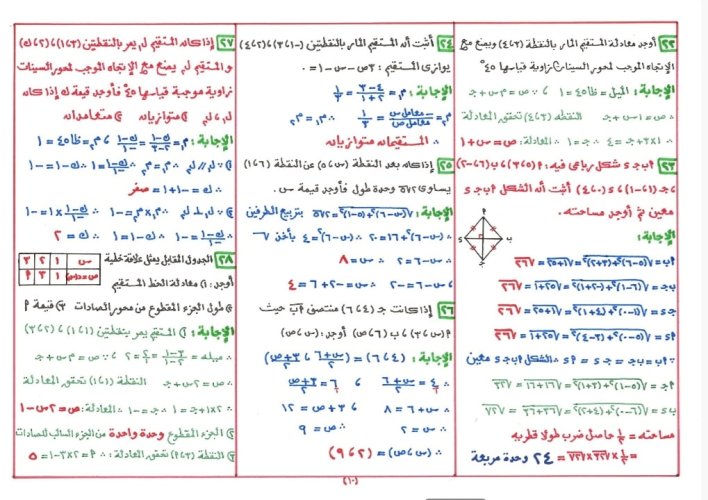 ٢٢ أوجد معادلة المستقيم المار بالنقطة (٣،٤) ويصنع مع
الاتجاه الموجب لمحور السينات زاوية قياسها ٤٥°
الإجابة: الميل = ظا٤٥ = ١ ، ∵ ص = م س + جـ
∴ ص = ١س + جـ النقطة (٣،٤) تحقق المعادلة
∴ ١×٣ + جـ = ٤ ∴ جـ = ١ ∴ المعادلة: ص = س + ١
٢٣ ٢بـ جـ ى شكل رباعى فيه: ٢(٣،٥) ، ب(٦،-٢)
، جـ(١،-١) ، ى(٠،٤) أثبت أن الشكل ٢ب جـ ى
معين ثم أوجد مساحته.
الإجابة:
∵ ٢ب = ب جـ = جـ ى = ى ٢ ∴ الشكل ٢ب جـ ى معين
مساحته = ١/٢ حاصل ضرب طولا قطريه
= ١/٢ × √٣٢ × √٧٢ = ٢٤ وحدة مربعة
٢٤ أثبت أن المستقيم المار بالنقطتين (-١،٣) ، (٢،٤)
يوازى المستقيم: ٣ص - س - ١ = ٠
الإجابة: م١ = (٤-٣)/(٢+١) = ١/٣
م٢ = -معامل س/معامل ص = ١/٣ ∴ م١ = م٢
∴ المستقيمان متوازيان
٢٥ إذا كانه بعد النقطة (س،٥) عن النقطة (٦،١)
يساوى ٢√٥ وحدة طول فأوجد قيمة س.
الإجابة: √((س-٦)²+(٥-١)²) = ٢√٥ بتربيع الطرفين
∴ (س-٦)²+١٦ = ٢٠ ∴ (س-٦)² = ٤ بأخذ √
∴ س-٦ = ٢ ∴ س = ٨
، س-٦ = -٢ ∴ س = -٢+٦ = ٤
٢٦ إذا كانت جـ (٦،٤) منتصف ٢ب حيث
٢(س،٣) ، ب (٦،ص) أوجد: (س،ص)
∴ ٤/١ = (س+٦)/٢ ، ٦/١ = (٣+ص)/٢
∴ س+٦ = ٨ ، ٣+ص = ١٢
∴ س = ٢ ∴ ص = ٩
∴ (س،ص) = (٢،٩)
٢٧ إذا كانه المستقيم ل١ يمر بالنقطتين (٣،١) ، (٢،ك)
و المستقيم ل٢ يصنع مع الاتجاه الموجب لمحور السينات
زاوية موجبة قياسها ٤٥° فأوجد قيمة ك إذا كان
ل١ ، ل٢ ١) متوازيان ٢) متعامدان
الإجابة: م١ = (ك-١)/(٢-٣) = (ك-١)/-١ ، م٢ = ظا٤٥ = ١
١) ل١ // ل٢ ∴ م١ = م٢ ∴ (ك-١)/-١ = ١ ∴ ك-١ = -١
∴ ك = -١+١ = صفر
٢) ∵ ل١ ⊥ ل٢ ∴ م١×م٢ = -١ ∴ (ك-١)/-١ × ١ = -١
∴ (ك-١)/-١ = -١ ∴ ك-١ = ١ ∴ ك = ٢
٢٨ الجدول المقابل يمثل علاقة خطية
س ١ ٢ ٣
ص = د(س) ١ ٣ ٢
أوجد: ١) معادلة الخط المستقيم
٢) طول الجزء المقطوع من محور الصادات ٣) قيمة ٢
الإجابة: ١) المستقيم يمر بنقطتين (١،١) ، (٢،٣)
∴ ميله = (٣-١)/(٢-١) = ٢/١ = ٢ ، ∵ ص = م س + جـ
∴ ص = ٢س + جـ النقطة (١،١) تحقق المعادلة
∴ ٢×١ + جـ = ١ ∴ جـ = -١ ∴ المعادلة: ص = ٢س - ١
٢) الجزء المقطوع وحدة واحدة من الجزء السالب للصادات
٣) النقطة (٣،٢) تحقق المعادلة: ∴ ٢ = ٢×٣-١ = ٥
(١٠)